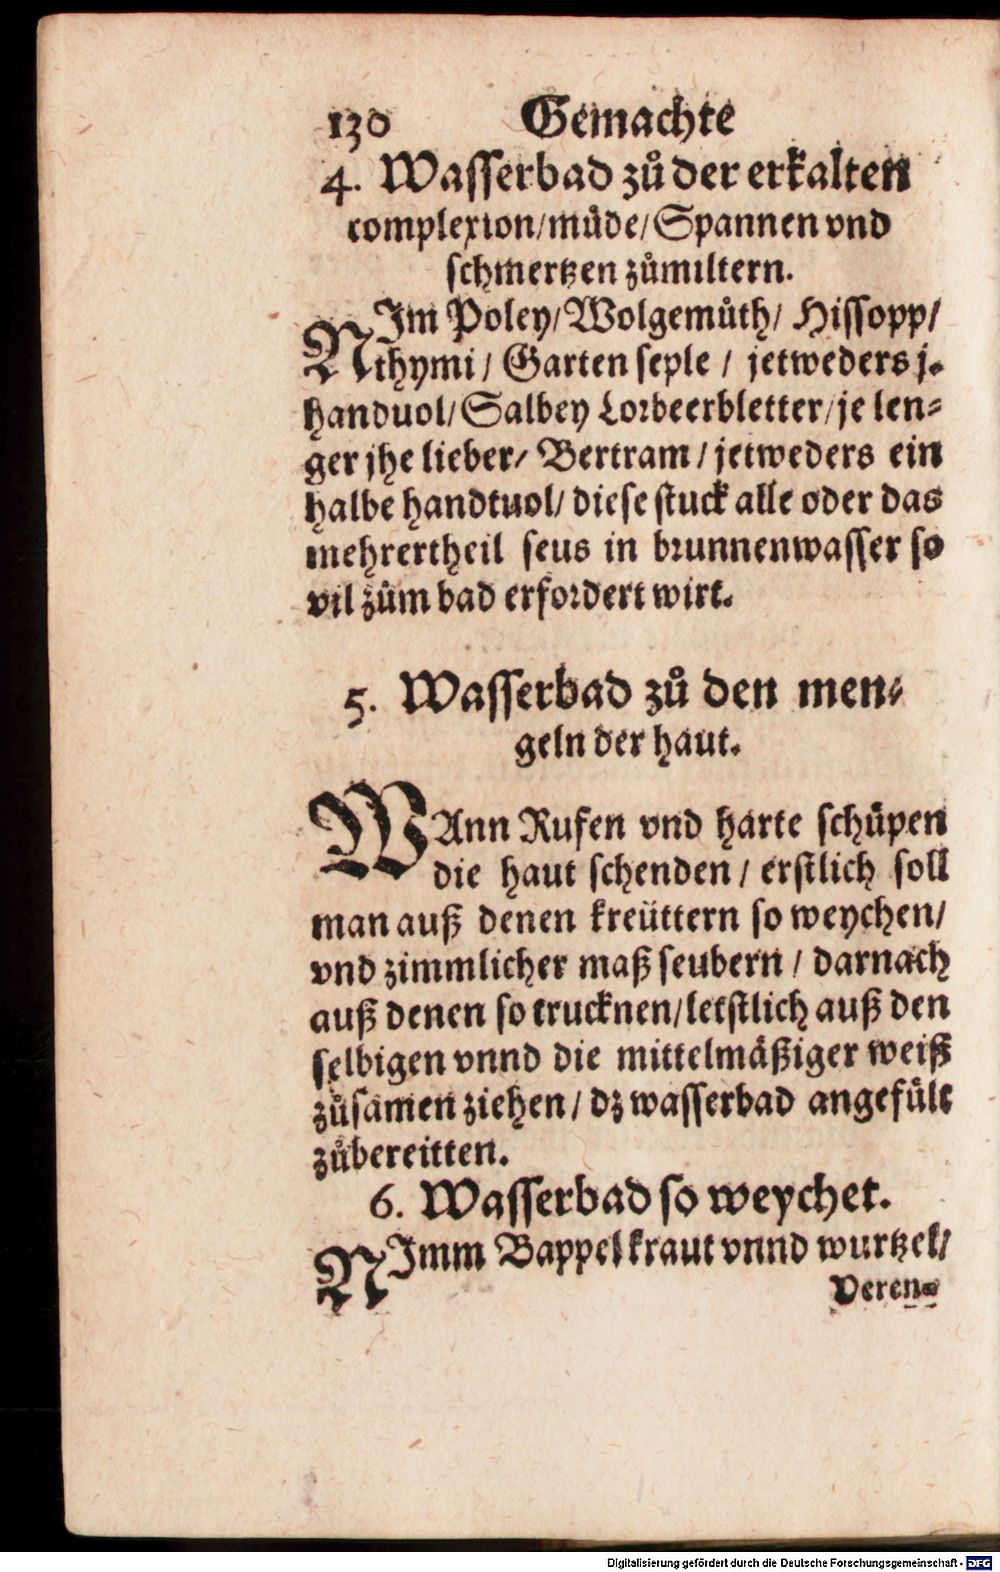 130 Gemachte
4. Wasserbad zů der erkalten
complexion/müde/Spannen vnd
schmertzen zůmiltern.
NIm Poley/Wolgemůth/ Hissopp/
thymi/ Garten seple / jetweders j.
handuol/Salbey Lorbeerbletter/je len⸗
ger jhe lieber/ Bertram/jetweders ein
halbe handtuol/ diese stuck alle oder das
mehrertheil seus in brunnenwasser so
vil zům bad erfordert wirt.
5. Wasserbad zů den men⸗
geln der haut.
WAnn Rufen vnd harte schüpen
die haut schenden/ erstlich soll
man auß denen kreüttern so weychen/
vnd zimmlicher maß seubern / darnach
auß denen so trucknen/letstlich auß den
selbigen vnnd die mittelmäßiger weiß
zůsamen ziehen/ dz wasserbad angefült
zůbereitten.
6. Wasserbad so weychet.
NImm Bappelkraut vnnd wurtzel/
Veren⸗
Digitalisierung gefördert durch die Deutsche Forschungsgemeinschaft - DFG